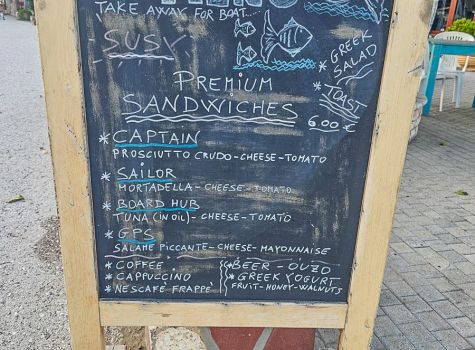 TAKE AWAY FOR BOAT...
SUSY
GREEK
SALAD
PREMIUM
SANDWICHES
* TOAST
6.00 €
* CAPTAIN
PROSCIUTTO CRUDO - CHEESE - TOMATO
* SAILOR
MORTADELLA - CHEESE - TOMATO
* BOARD HUB
TUNA (IN OIL) - CHEESE - TOMATO
* GPS
SALAME PICCANTE - CHEESE - MAYONNAISE
* COFFEE
* CAPPUCCINO
* NESCAFÉ FRAPPE
* BEER - OUZO
* GREEK YOGURT
FRUIT - HONEY - WALNUTS